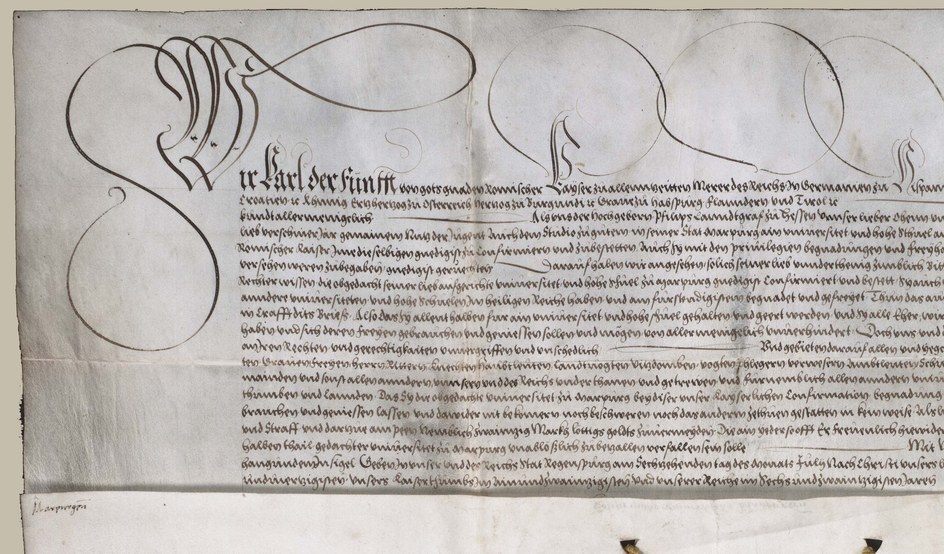 Wir Karl der Fünfft von gots gnaden Romischer Kayser zu allen zeiten Merer des Reichs In Germanien zu Hispan
Croatien ꝛc Khunig Ertzhertzog zu Osterreich Hertzog zu Burgundi ꝛc Graue zu Habspurg Flanndern und Tirol ꝛc
kundt allermeniglich Als uns der Hochgeborn Philips Lanndtgraf zu Hessen unser lieber Oheim
lieb verschiner Jar gemainem Nutz der Jugent auch dem Studio zu gutem in seiner Stat Marpurg ain universitet und hohe Schuel
Romischer Kaiser Ime dieselbigen gnedigist zu Confirmiern und zubestetten Auch Sy mit den privilegien begnadungen und
versehen weren zubegaben gnedigst geruechten Darauf haben wir angesehen solich seiner lieb underthenig zimblich
Rechter wissen die obgedacht seiner lieb aufgerichte universitet und hohe Schuel zu Marpurg gnedigist Confirmiert und bestett
annder universiteten und hohe Schuelen Im heiligen Reich haben und am furstendigisten begnadet und gefreyet Thun das
in Crafft dits Briefs Also das Sy allenthalben fur ain universitet und hohe Schuel gehalten und geert werden und Sy alle
haben und sich deren freyen gebrauchen und geniessen sollen und mogen von allermenigelich unverhindert Doch uns und
an Iren Rechten und gerechtigkaiten unvergriffen und unschedlich Und gebieten darauf allen und
ten Grauen Freyen herrn Rittern knechten haubtleuten Landtvogten Vitzdomben vogten phlegern verwesern Ambtleuten
manden und sonst allen anndern unsern und des Reichs underthanen und getrewen und furnemblich allen anndern
thumben und Lannden Das Sy die obgedacht universitet zu Marpurg bey diser unser kayserlichen Confirmation begnadung
brauchen und geniessen lassen und darwider nit bekumern noch beschweren noch das anndern zethuen gestatten in kein weise Als
und Straff und darzue ain peen Nemblich zwaintzig Marckh lottigs golds zuvermeyden Die ain yeder so offt Er frevenlich hierwider
halben thail gedachter universitet zu Marpurg unablößlich zubezallen verfallen sein solle Mit
hangundem Insigel Geben in unser und des Reichs Stat Regenspurg am Sechzehenden tag des Monats July Nach Christi unsers
undviertzigisten unsers Kaiserthumbs im ainundzwaintzigisten und unserer Reiche im Sechsundzwaintzigisten Jaren